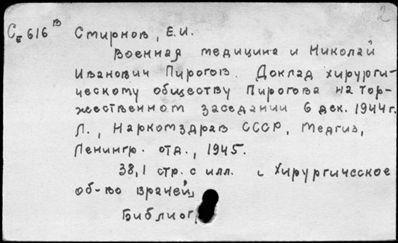 2
СЕ 616 В Смирнов, Е.И.
Военная медицина и Николай
Иванович Пирогов. Доклад хирурги-
ческому обществу Пирогова на тор-
жественном заседании 6 дек. 1944 г.
Л., Наркомздрав СССР, Медгиз,
Ленингр. отд., 1945.
38,1 стр. с илл. (Хирургическое
об-во врачей
Библиог.